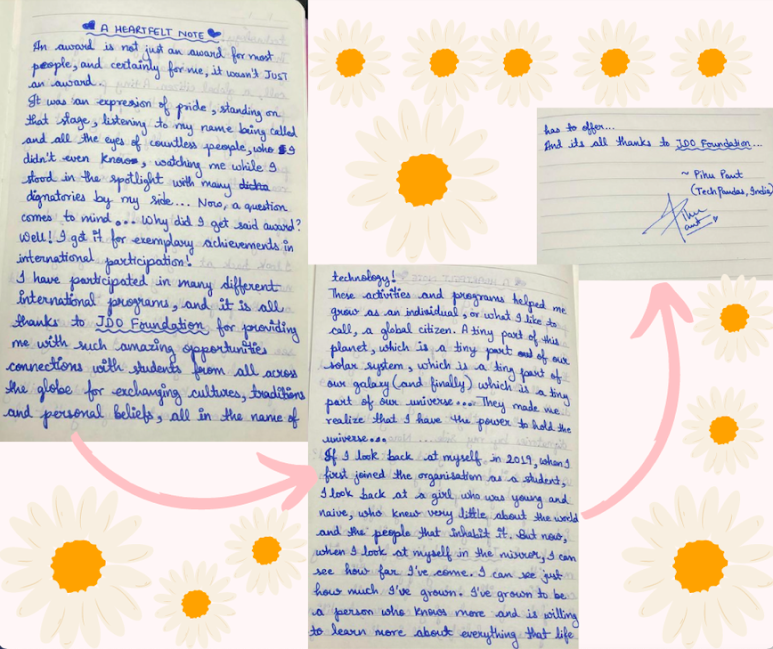 A HEARTFELT NOTE
An award is not just an award for most
people, and certainly for me, it wasn't JUST
an award.
It was an expression of pride, standing on
that stage, listening to my name being called
and all the eyes of countless people, who I
didn't even know, watching me while I
stood in the spotlight with many
dignatories by my side... Now, a question
comes to mind... Why did I get said award?
Well! I got it for exemplary achievements in
international participation!
I have participated in many different
international programs, and it is all
thanks to JDO Foundation for providing
me with such amazing opportunities
connections with students from all across
the globe for exchanging cultures, traditions
and personal beliefs, all in the name of
technology!
These activities and programs helped me
grow as an individual, or what I like to
call, a global citizen. A tiny part of this
planet, which is a tiny part of our
solar system, which is a tiny part of
our galaxy (and finally) which is a tiny
part of our universe... They made me
realize that I have the power to hold the
universe...
If I look back at myself, in 2019, when I
first joined the organisation as a student,
I look back at a girl who was young and
naive, who knew very little about the world
and the people that inhabit it. But now,
when I look at myself in the mirror, I can
see how far I've come. I can see just
how much I've grown. I've grown to be
a person who knows more and is willing
to learn more about everything that life
has to offer...
And its all thanks to JDO Foundation...
~ Pihu Pant
(TechPandas, India)
Pihu
Pant